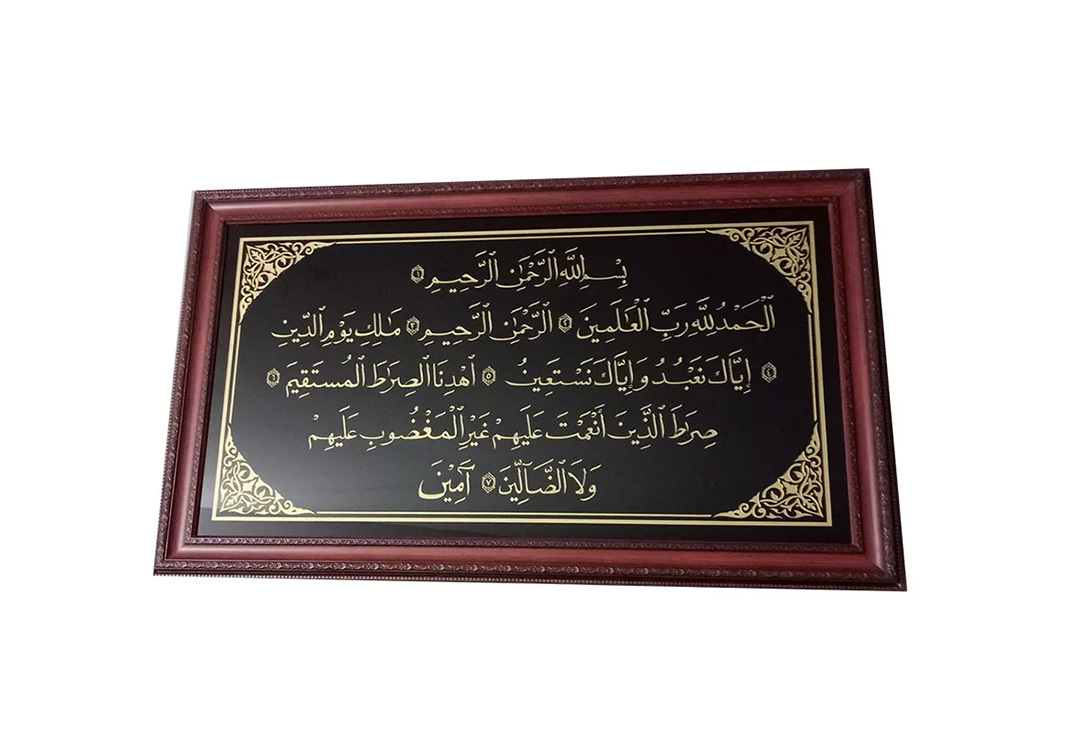 بِسْمِ ٱللَّهِ ٱلرَّحْمَٰنِ ٱلرَّحِيمِ ۝١
ٱلْحَمْدُ لِلَّهِ رَبِّ ٱلْعَٰلَمِينَ ۝٢ ٱلرَّحْمَٰنِ ٱلرَّحِيمِ ۝٣ مَٰلِكِ يَوْمِ ٱلدِّينِ
۝٤ إِيَّاكَ نَعْبُدُ وَإِيَّاكَ نَسْتَعِينُ ۝٥ ٱهْدِنَا ٱلصِّرَٰطَ ٱلْمُسْتَقِيمَ ۝٦
صِرَٰطَ ٱلَّذِينَ أَنْعَمْتَ عَلَيْهِمْ غَيْرِ ٱلْمَغْضُوبِ عَلَيْهِمْ
وَلَا ٱلضَّآلِّينَ ۝٧ آمِيْنَ